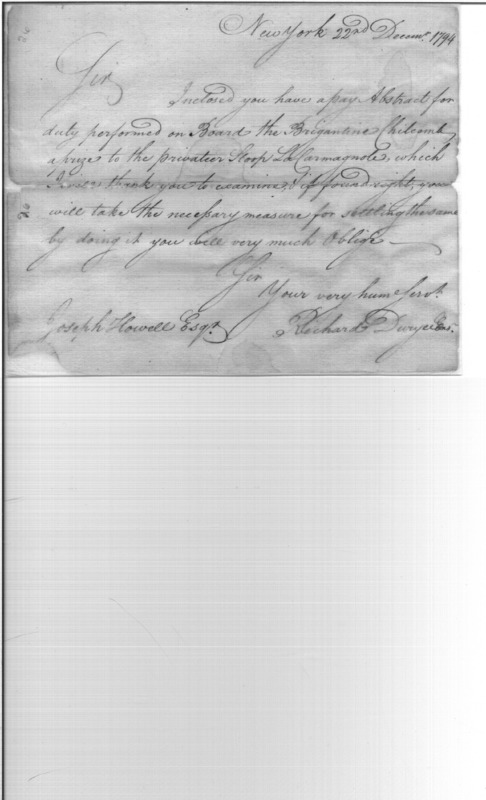 New York 22nd Decemr. 1794
Sir
Inclosed you have a pay Abstract for
duty performed on Board the Brigantine Chilcomb
a prize to the privateer Sloop La Carmagnole, which
I will thank you to examine, & if found right, you
will take the necessary measure for settling the same
by doing it you will very much Oblige
Sir
Your very hume. Servt.
Joseph Howell Esqr. Richard